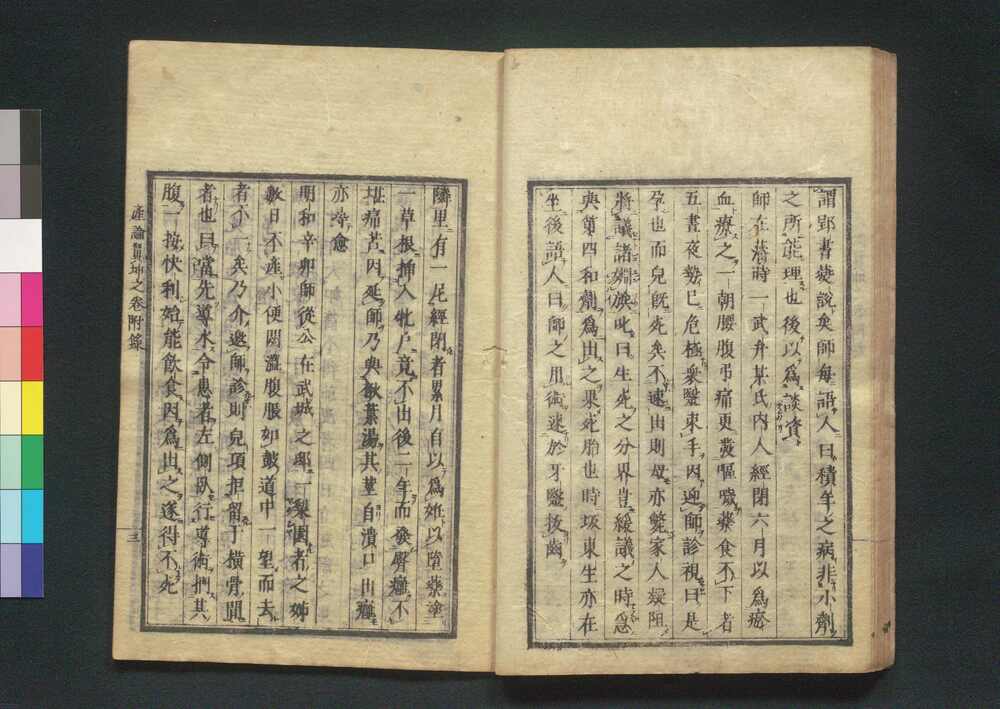 謂郢書燕說矣師每語人曰積年之病非小劑
之所能理也後以為談資
師在膳時一武弁某氏內人經閉六月以為瘀
血療之一朝腰腹弔痛更發嘔噦藥食不下者
五晝夜勢已危極衆醫束手因迎師診視曰是
孕也而兒旣死矣不速出則母亦斃家人緩阻
將議諸姻族叱曰生死之分界豈緩議之時急
與第四和劑為出之果死胎也時坂東生亦在
坐後語人曰師之用術速於牙醫拔齒
隣里有一尼經閉者累月自以為姙以墮藥塗
一草根揷入牝戶竟不出後二年而發臀癰不
堪痛苦因延師乃與敗葉湯其莖自潰口出癰
亦尋愈
明和辛卯師從公在武城之邸一梨園者之婦
數日不產小便閉澀腹脹如鼓道中一望而去
者亦矣乃介邀師診則兒項拒留于橫骨間
者也曰當先導水令患者左側臥行導術捫其
腹一按快利始能飲食因為出之遂得不死
產論翼坤之卷附錄
三